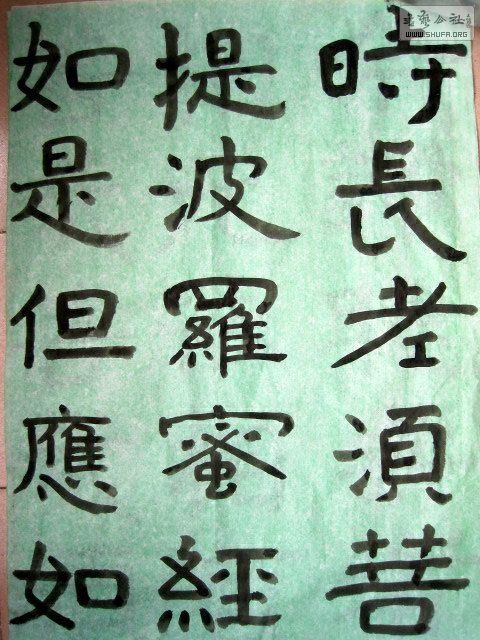 時長老須菩
提波羅蜜經
如是但應如
書藝公社
WWW.SHUFA.ORG